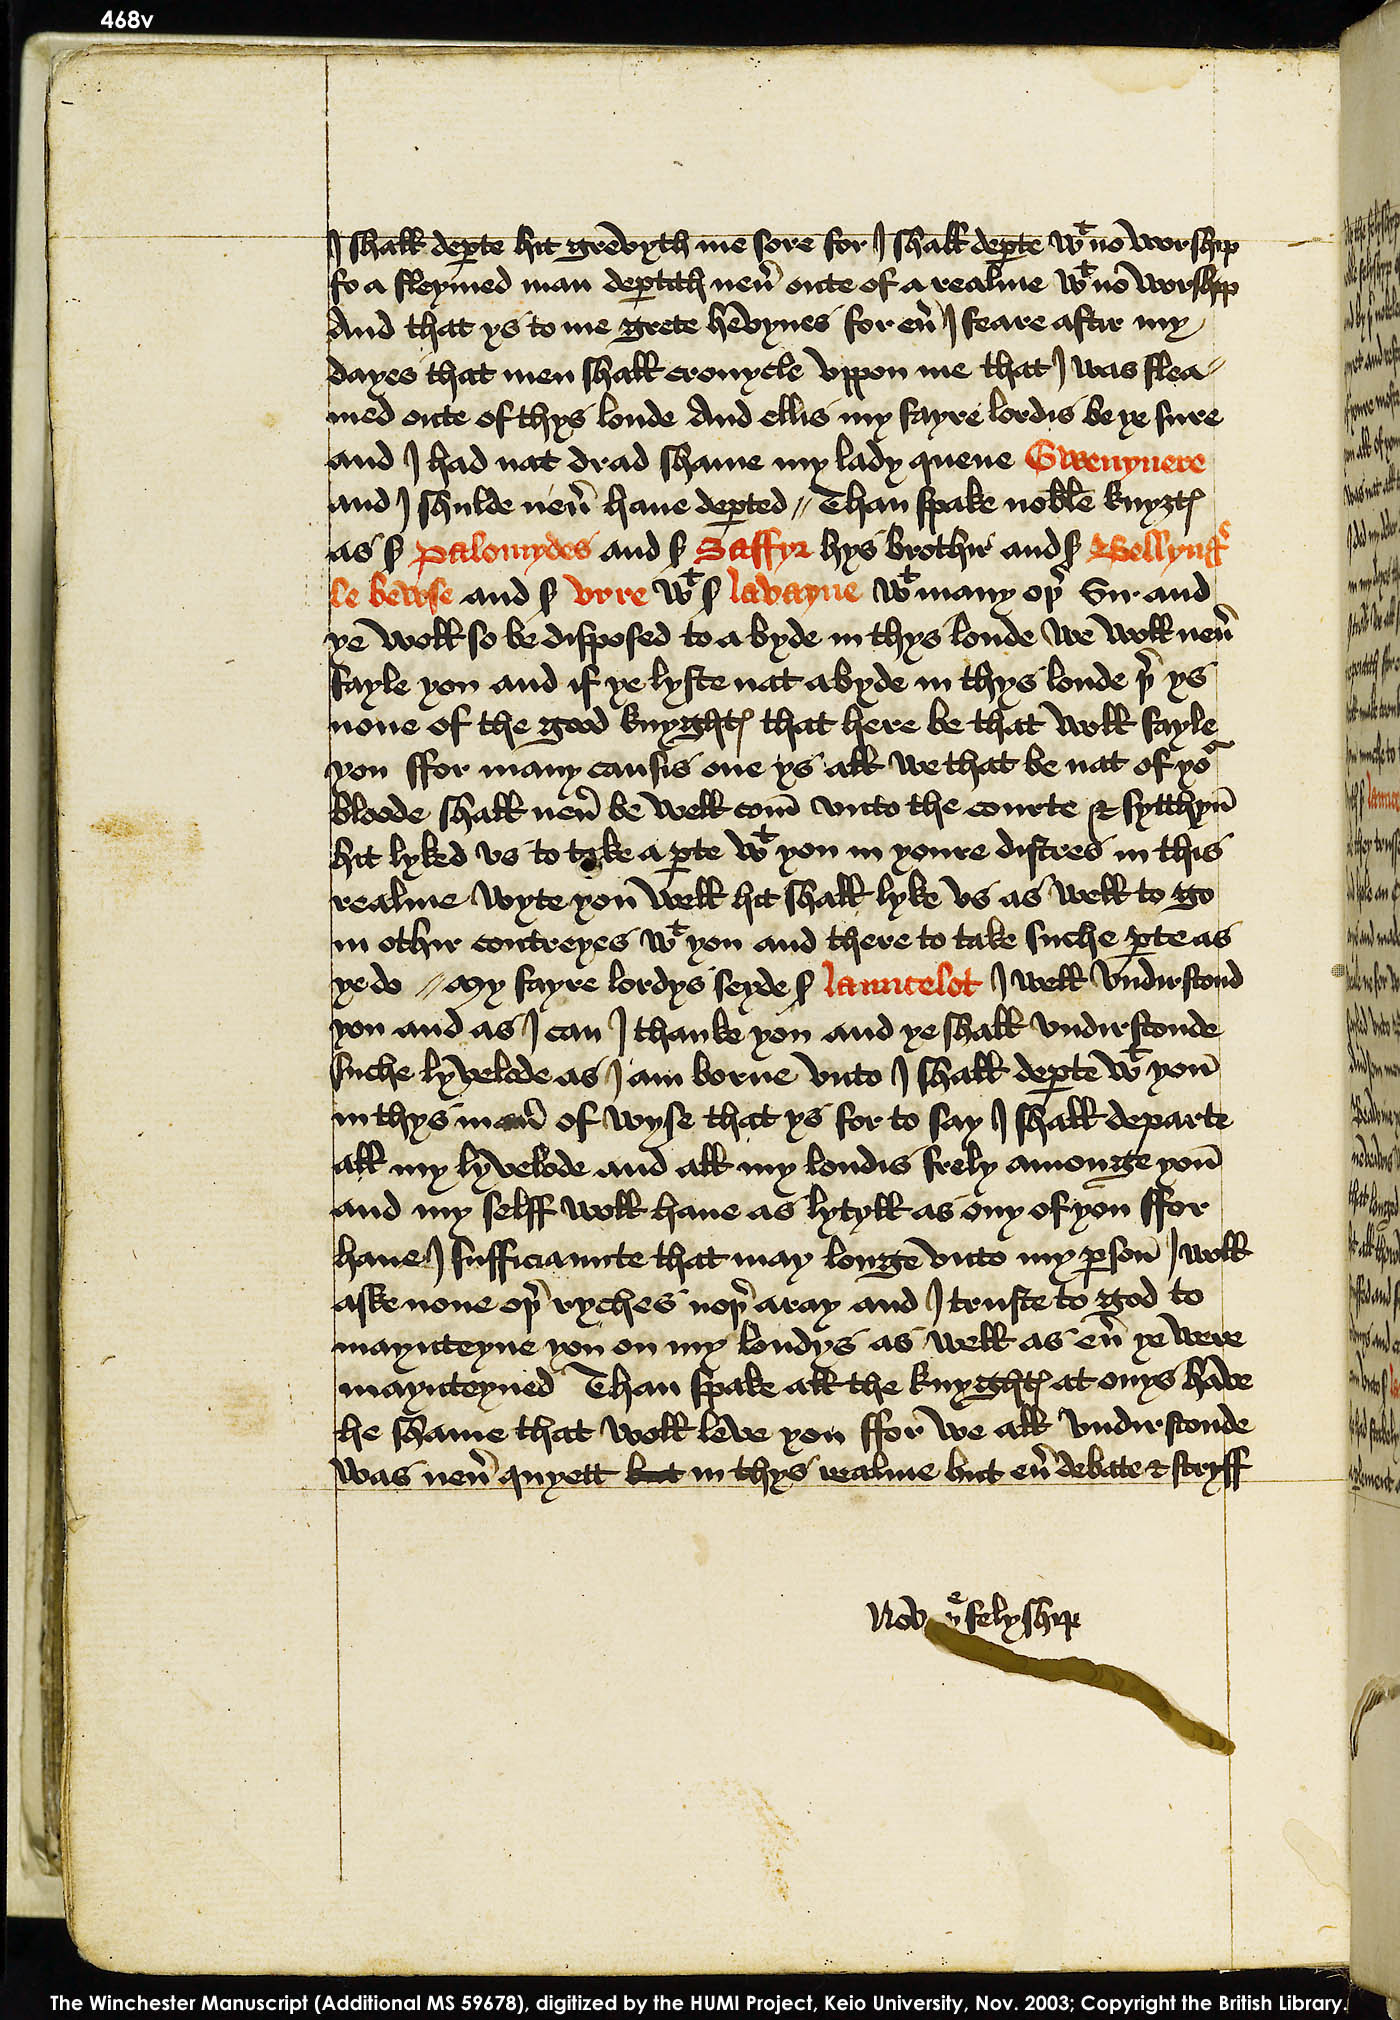 468v
I shall deꝑte hit grevyth me sore for I shall deꝑte wᵗ no worship
fo a fleymed man deꝑtith neuͬ oute of a realme wᵗ no worshipp
And that ys to me grete hevynes for euͬ I feare aftir my
dayes that men shall cronycle vppon me that I was flea
med oute of thys londe And ellis my fayre lordis be ye sure
and I had nat drad shame my lady quene Gwenyuere
and I shulde neuͬ haue deꝑted // Than spake noble knyztꝭ
as ẜ Palomydes and ẜ Saffyr hys brothir and ẜ Bellyngͬe
le bewse and ẜ vrre wᵗ ẜ lavayne wᵗ many oþͬ Sir and
ye woll so be disposed to abyde in thys londe we woll neuͬ
fayle you and if ye lyste nat abyde in thys londe þͬ ys
none of the good knyghtꝭ that here be that woll fayle
you ffor many causis one ys all we that be nat of yoͬ
bloode shall neuͬ be well com̄ vnto the courte & sytthyn̄
hit lyked vs to take a ꝑte wᵗ you in youre distres in this
realme wyte you well hit shall lyke vs as well to go
in othir contreyes wᵗ you and there to take suche ꝑte as
ye do // My fayre lordys seyde ẜ launcelot I well vndirstond
you and as I can I thanke you and ye shall vndirstonde
suche lyvelode as I am borne vnto I shall deꝑte wᵗ you
in thys manͬ of wyse that ys for to say I shall departe
all my lyvelode and all my londis frely amonge you
and my selff woll haue as lytyll as ony of you ffor
haue I sufficiaunte that may longe vnto my ꝑson̄ I woll
aske none oþͬ ryches noþͬ aray and I truste to god to
maynteyne you on my londys as well as euͬ ye were
maynteyned Than spake all the knyghtꝭ at onys have
he shame that woll leve you ffor we all vndirstonde
was neuͬ quyett but in thys realme but euͬ debate & stryff
Now yᵉ felyship
The Winchester Manuscript (Additional MS 59678), digitized by the HUMI Project, Keio University, Nov. 2003; Copyright the British Library.